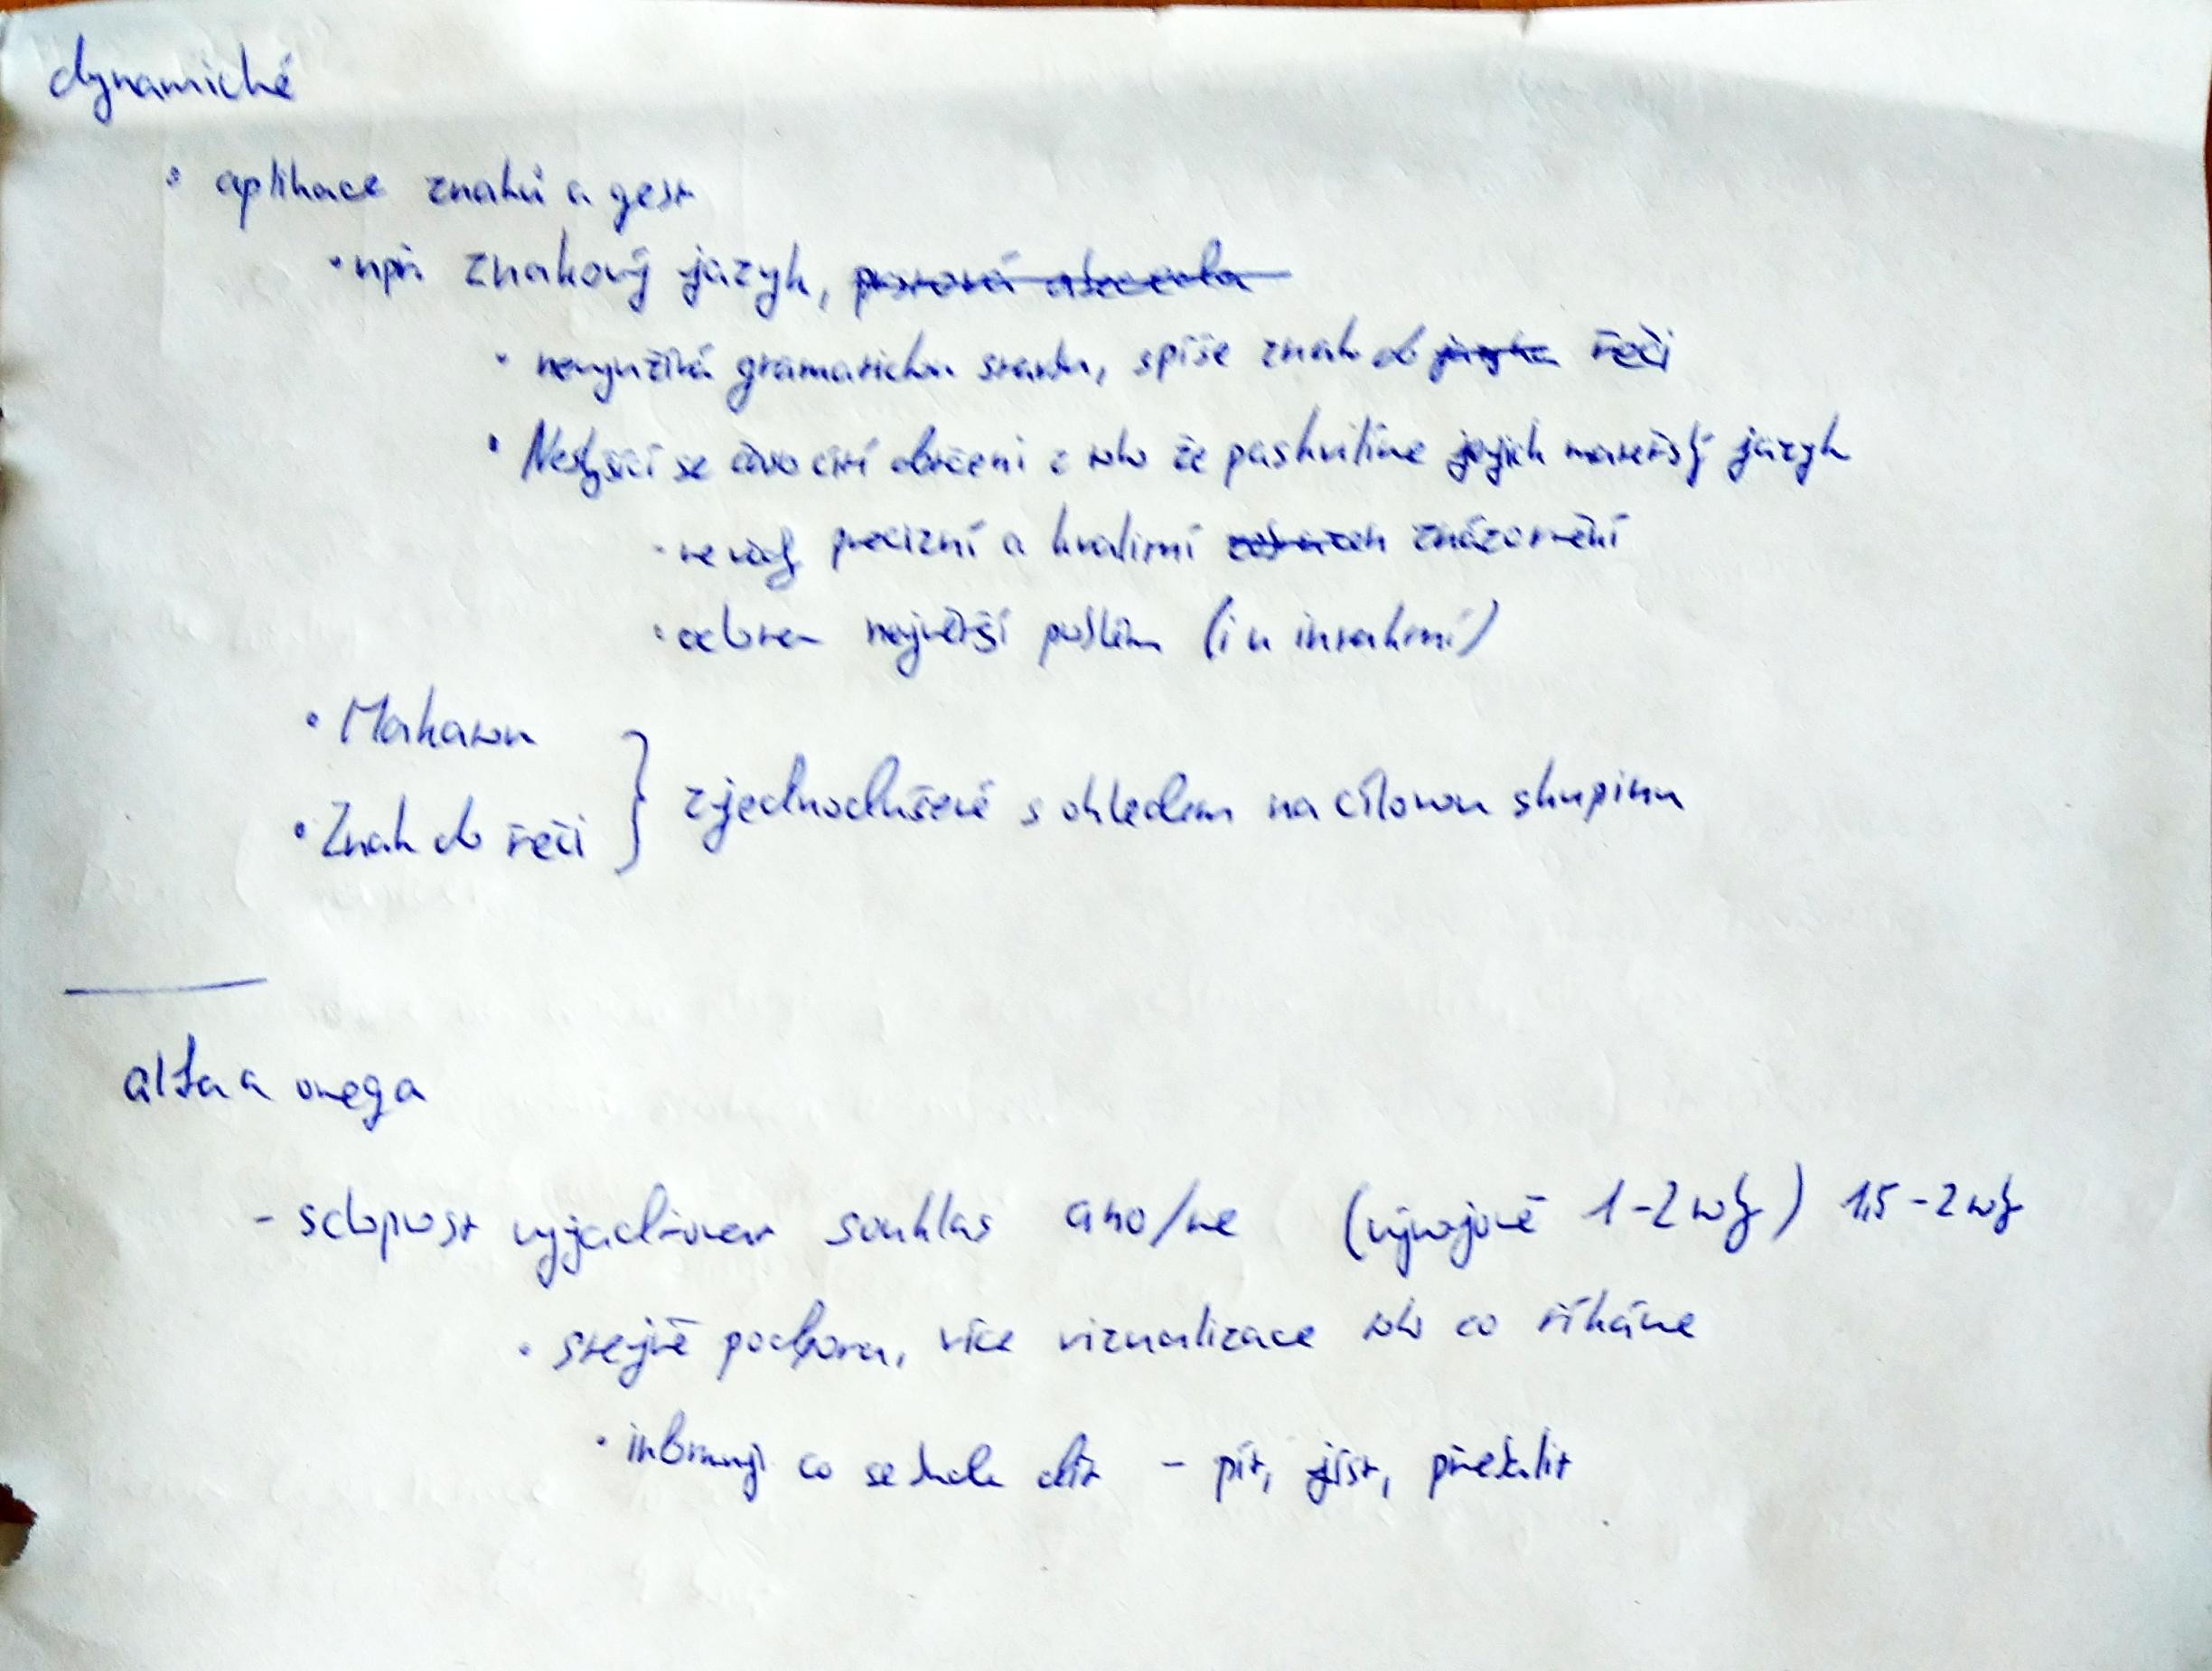 dynamické
• aplikace znaků a gest
• např. znakový jazyk, prstová abeceda
• nevyužívá gramatickou stavbu, spíše znak do jazyka řeči
• Neslyšící se cití dotčeni z toho že paskvilíme jejich mateřský jazyk
• ne vždy precizní a kvalitní znázornění
• odborem největší problém (i u intaktní)
• Makaton
• Znak do řeči } zjednodušené s ohledem na cílovou skupinu
alfa a omega
- schopnost vyjadřovat souhlas ano/ne (vývojově 1-2 roky) 1,5-2 roky
• stejně podpora, více vizualizace toho co říkáme
• informuji co se bude dít - pít, jíst, přebalit